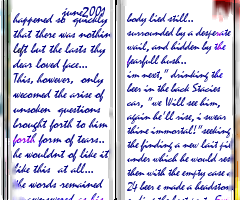 june2001
happened so quickly
that there was nothin
left but the lasts thy
dear loved face...
This, however, only
wecomed the arise of
unsoken questions
brought forth to him
forth form of tears..
he wouldnt of like it
like this at all...
he words remained
body lied still..
surrounded by a desperate
wail, and hidden by the
fearfull hush..
im next," drinking the
beer in the back Stacies
car, "we Will see him,
again he'll rise, i swear
thine immortal!" seeking
the finding a new last pi
under which he would res
then with the empty case
24 beer s made a headston